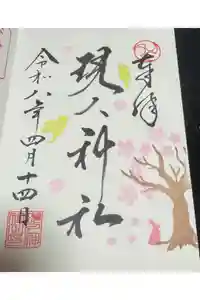 奉拝
現人神社
令和八年四月十四日